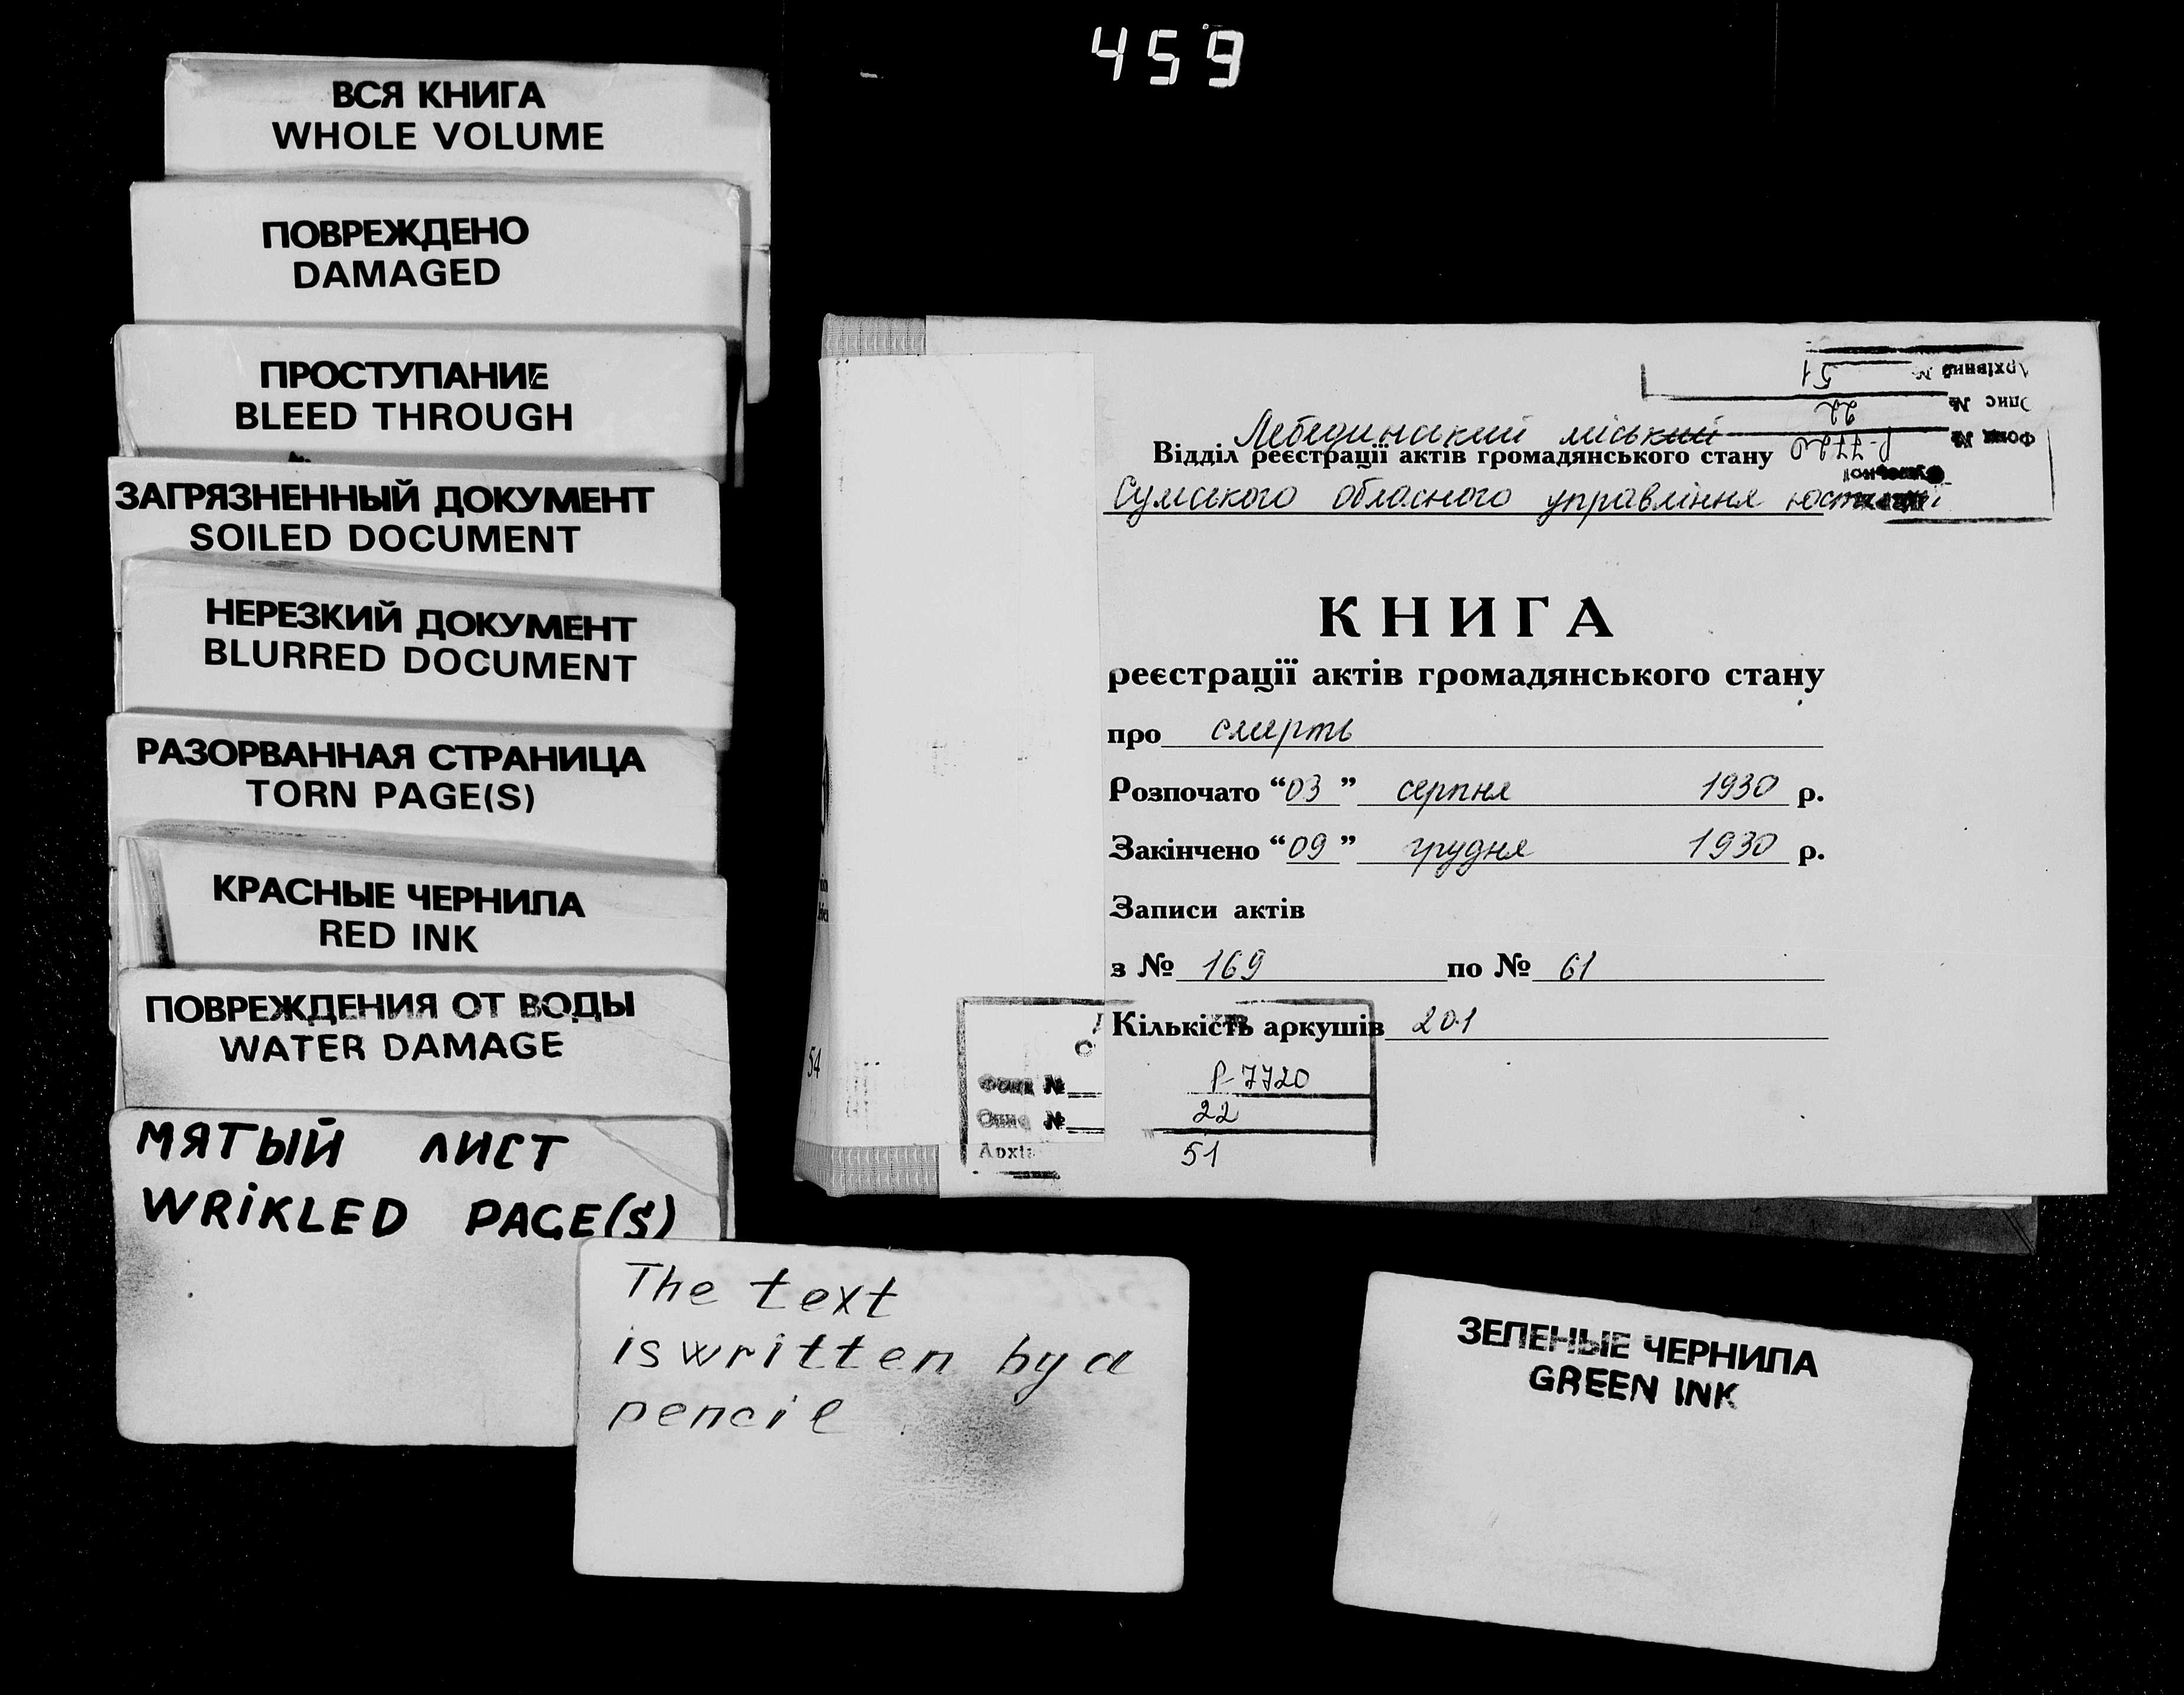 459
ВСЯ КНИГА
WHOLE VOLUME
ПОВРЕЖДЕНО
DAMAGED
ПРОСТУПАНИЕ
BLEED THROUGH
ЗАГРЯЗНЕННЫЙ ДОКУМЕНТ
SOILED DOCUMENT
НЕРЕЗКИЙ ДОКУМЕНТ
BLURRED DOCUMENT
РАЗОРВАННАЯ СТРАНИЦА
TORN PAGE(S)
КРАСНЫЕ ЧЕРНИЛА
RED INK
ПОВРЕЖДЕНИЯ ОТ ВОДЫ
WATER DAMAGE
МЯТЫЙ ЛИСТ
WRIKLED PAGE(S)
The text
is written by a
pencil
ЗЕЛЕНЫЕ ЧЕРНИЛА
GREEN INK
Фонд № Р-7720
Опис № 22
Архівний № 51
Лебединський міський
Відділ реєстрації актів громадянського стану
Сумського обласного управління юстиції
КНИГА
реєстрації актів громадянського стану
про смерть
Розпочато “03” серпня 1930 р.
Закінчено “09” грудня 1930 р.
Записи актів
з № 169 по № 61
Кількість аркушів 201
Фонд № Р-7720
Опис № 22
Архі 51
54